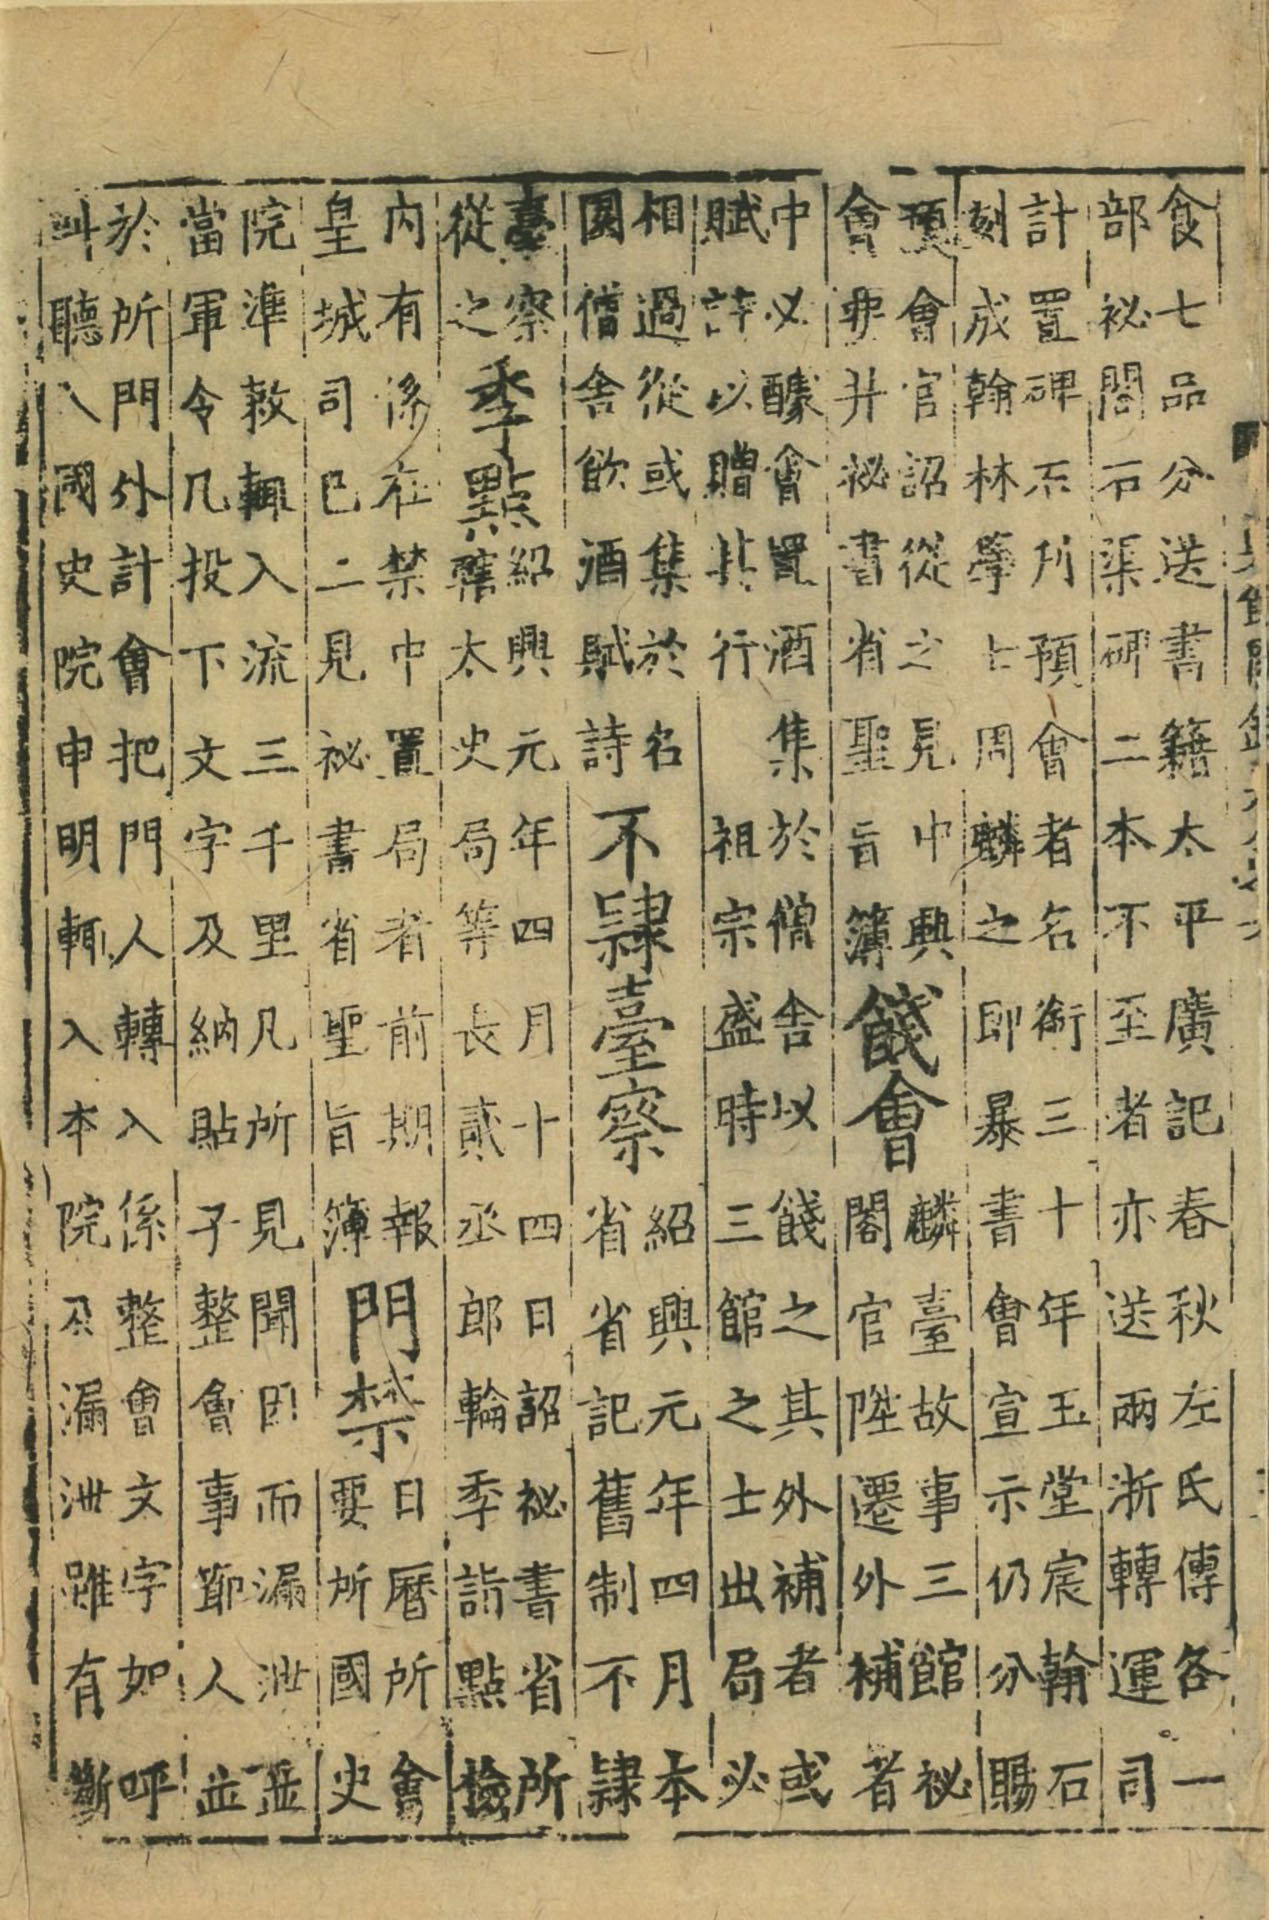 食七品分送書籍太平廣記春秋左氏傳各一
部祕閣石渠碑二本不至者亦送兩浙轉運司
計置碑石刋預會者名銜三十年玉堂宸翰石
刻成翰林學士周麟之即暴書會宣示仍分賜
預會官詔從之見中興
會要并祕書省聖旨簿
餞會
麟臺故事三館祕
閣官陞遷外補者
中必醵會置酒集於僧舍以餞之其外補者或
賦詩以贈其行 祖宗盛時三館之士出局必
相過從或集於名
園僧舍飲酒賦詩
不隸臺察
紹興元年四月本
省省記舊制不隸
臺察
從之
季點
紹興元年四月十四日詔祕書省所
轄太史局等長貳丞郎輪季詣點撿
内有係在禁中置局者前期報
皇城司巳二見祕書省聖旨簿
門禁
日曆所會
要所國史
院準敕輒入流三千里凡所見聞因而漏泄並
當軍令凡投下文字及納貼子整會事節人並
於所門外計會把門人轉入係整會文字如呼
叫聽入國史院申明輒入本院及漏泄雖有斷